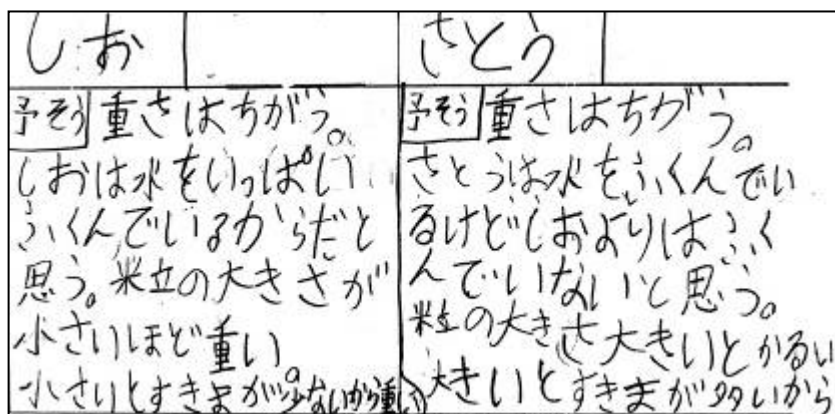 しお
予そう 重さはちがう。
しおは水をいっぱい
ふくんでいるからだと
思う。粒の大きさが
小さいほど重い。
小さいとすきまが少ないから重い
さとう
予そう 重さはちがう。
さとうは水をふくんでい
るけどしおよりはふく
んでいないと思う。
粒の大きさ大きいとかるい
大きいとすきまが多いから